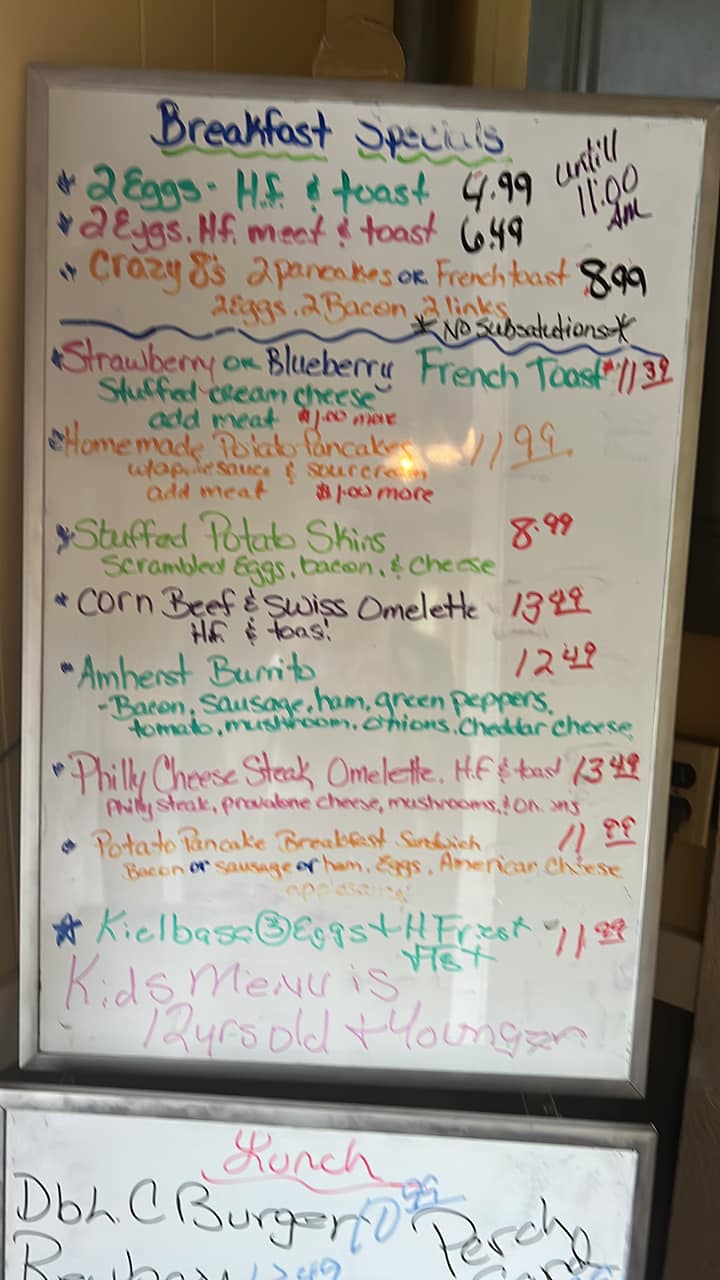 Breakfast Specials
untill
11:00
AM
* 2 Eggs. H.F. & toast 4.99
* 2 Eggs. Hf. meat & toast 6.49
* Crazy 8's 2 pancakes OR French toast 8.99
2 Eggs. 2 Bacon. 2 links
* No Subsatutions *
* Strawberry OR Blueberry French Toast $11.39
Stuffed cream cheese
add meat $1.00 more
Homemade Potato Pancakes 11.99
w/applesauce & sourcream
add meat $1.00 more
* Stuffed Potato Skins 8.99
Scrambled Eggs, bacon, & cheese
* Corn Beef & Swiss Omelette 13.49
H.F. & toast
* Amherst Burrito 12.49
- Bacon, sausage, ham, green peppers,
tomato, mushroom, onions, cheddar cheese
* Philly Cheese Steak Omelette. H.F & toast 13.49
Philly steak, provalone cheese, mushrooms, & onions
* Potato Pancake Breakfast Sandwich 11.99
Bacon or sausage or ham, Eggs, American cheese
* Kielbasa ③ Eggs + H Frest 11.99
Kids Menu is
12 yrs old + Younger
Lunch
Dbl. C Burger 10.99
Perch
Reuben 12.49